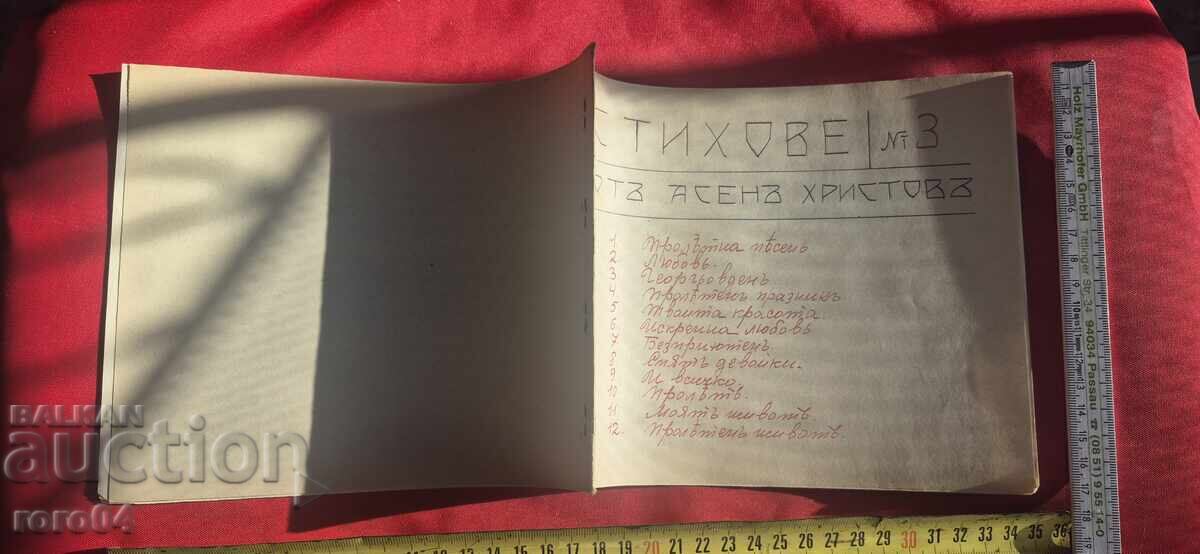 СТИХОВЕ № 3
ОТЪ АСЕНЪ ХРИСТОВЪ
1. Пролѣтна пѣсень
2. Любовь.
3 Георгьовденъ
4 Пролѣтенъ празникъ
5 Твоята красота
6. Искренна любовь
7 Безприютенъ
8 Спятъ девойки.
9 И всичко.
10 Пролѣть.
11 Моятъ животъ
12. Пролѣтенъ животъ.
BALKAN
auction
roro04
Holz Mayrhofer GmbH Tittlinger Str. 34 94034 Passau ☎ (08 51) 9 55 14-0
20 21 22 23 24 25 26 27 28 29 30 31 32 33 34 35 36